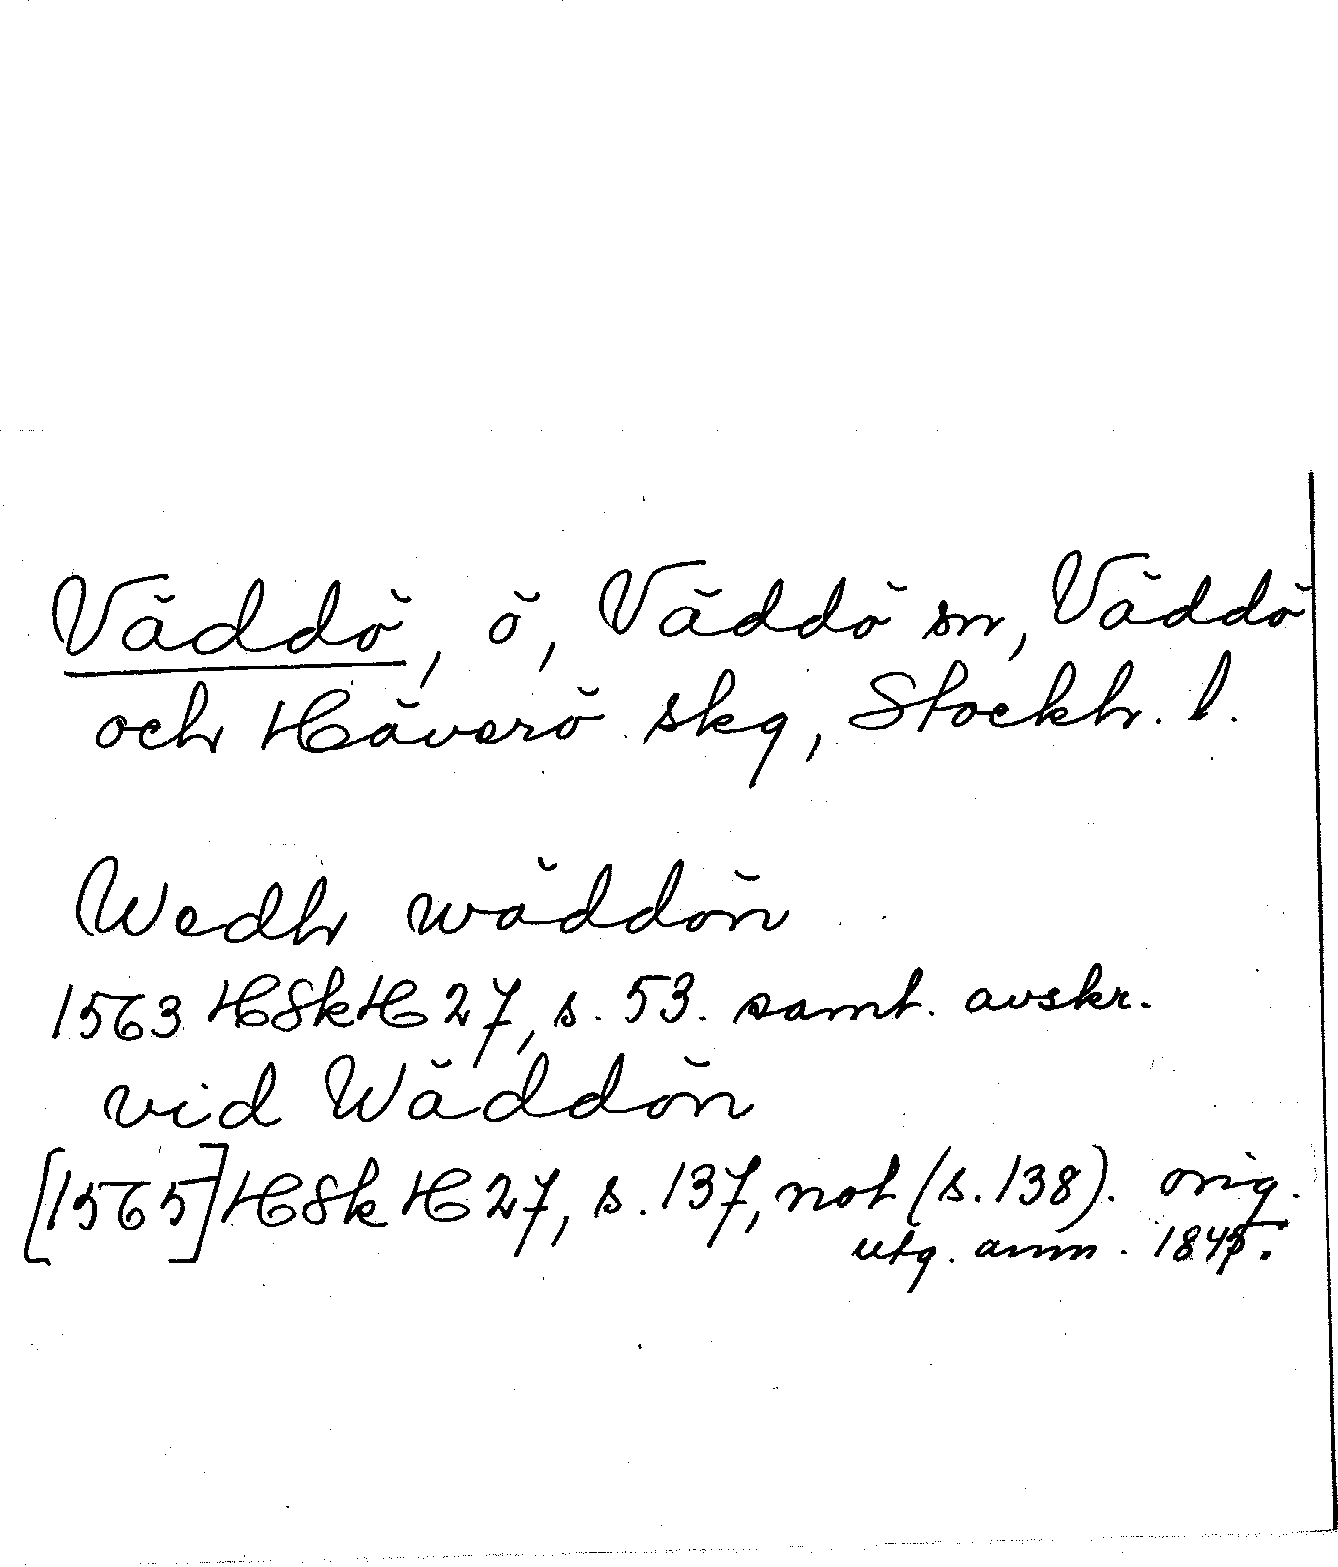 Väddö, ö, Väddö sn, Väddö
och Häverö skg, Stockh. l.
Wedh wäddön
1563 HSkH 27, s. 53. samt. avskr.
vid Wäddön
[1565] HSkH 27, s. 137, not (s. 138). orig.
utg. anm.